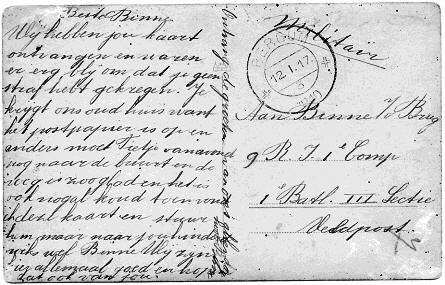 Beste Binne
Wij hebben jou kaart
ontvangen en waren
er erg bly om dat je geen
straf hebt gekregen. Je
krijgt ons oud huis want
het postpapier is op en
anders moet Tetje vanavond
nog naar de buurt en de
weg is zoo glad en het is
ook nogal koud toen vond
deze kaart en stuur
hem maar naar jou
wel Binne Wij zijn
allemaal goed en hop
dat ook van jou.
Militair
BERGUM
12.1.17.
Aan Binne v/d Brug
9 R. I 1e Comp
1e Batl. III Sectie
Veldpost.